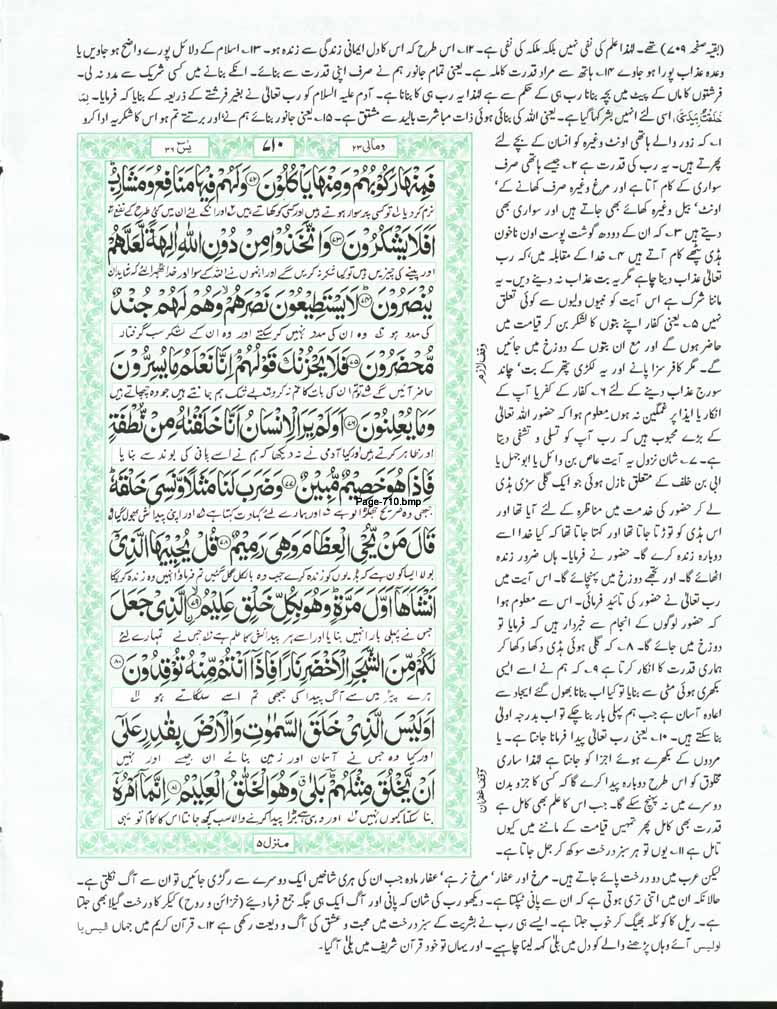 (بقیہ صفحہ ۷۰۹) تھے۔ لہٰذا علم کی نفی نہیں بلکہ ملکہ کی نفی ہے۔ ۱۲؎ اس طرح کہ اس کا دل ایمانی زندگی سے زندہ ہو۔ ۱۳؎ اسلام کے دلائل پورے واضح ہو جاویں یا
وعدہ عذاب پورا ہو جاوے ۱۴؎ ہاتھ سے مراد قدرت کاملہ ہے۔ یعنی تمام جانور ہم نے صرف اپنی قدرت سے بنائے۔ انکے بنانے میں کسی شریک سے مدد نہ لی۔
فرشتوں کا ماں کے پیٹ میں بچہ بنانا رب ہی کے حکم سے ہے لہٰذا یہ رب ہی کا بنانا ہے۔ آدم علیہ السلام کو رب تعالیٰ نے بغیر فرشتے کے ذریعہ کے بنایا کہ فرمایا۔ لِمَا
خَلَقْتُ بِیَدَیَّ، اسی لئے انہیں بشر کہا گیا ہے۔ یعنی اللہ کی بنائی ہوئی ذات مباشرت بالید سے مشتق ہے۔ ۱۵؎ یعنی جانور بنائے ہم نے اور برتتے تم ہو اس کا شکریہ ادا کرو
۱؎ کہ زور والے ہاتھی اونٹ وغیرہ کو انسان کے بچے لئے
پھرتے ہیں۔ یہ رب کی قدرت ہے ۲؎ جیسے ہاتھی صرف
سواری کے کام آتا ہے اور مرغ وغیرہ صرف کھانے کے'
اونٹ' بیل وغیرہ کھائے بھی جاتے ہیں اور سواری بھی
دیتے ہیں ۳؎ کہ ان کے دودھ گوشت پوست اون ناخون
ہڈی پٹھے کام آتے ہیں ۴؎ خدا کے مقابلہ میں' کہ رب
تعالیٰ عذاب دینا چاہے مگر یہ بت عذاب نہ دینے دیں۔ یہ
ماننا شرک ہے اس آیت کو نبیوں ولیوں سے کوئی تعلق
نہیں ۵؎ یعنی کفار اپنے بتوں کا لشکر بن کر قیامت میں
حاضر ہوں گے اور مع ان بتوں کے دوزخ میں جائیں
گے۔ مگر کافر سزا پانے اور یہ لکڑی پتھر کے بت' چاند
سورج عذاب دینے کے لئے ۶؎ کفار کے کفر یا آپ کے
انکار یا ایذا پر غمگین نہ ہوں معلوم ہوا کہ حضور اللہ تعالیٰ
کے بڑے محبوب ہیں کہ رب آپ کو تسلی و تشفی دیتا
ہے۔ ۷؎ شان نزول یہ آیت عاص بن وائل یا ابوجہل یا
ابی بن خلف کے متعلق نازل ہوئی جو ایک گلی سڑی ہڈی
لے کر حضور کی خدمت میں مناظرہ کے لئے آیا تھا اور
اس ہڈی کو توڑتا جاتا تھا اور کہتا جاتا تھا کہ کیا خدا اسے
دوبارہ زندہ کرے گا۔ حضور نے فرمایا۔ ہاں ضرور زندہ
اٹھائے گا۔ اور تجھے دوزخ میں پہنچائے گا۔ اس آیت میں
رب تعالیٰ نے حضور کی تائید فرمائی۔ اس سے معلوم ہوا
کہ حضور لوگوں کے انجام سے خبردار ہیں کہ فرمایا تو
دوزخ میں جائے گا۔ ۸؎ کہ گلی ہوئی ہڈی دکھا دکھا کر
ہماری قدرت کا انکار کرتا ہے ۹؎ کہ ہم نے اسے ایسی
بکھری ہوئی مٹی سے بنایا تو کیا اب بنانا بھول گئے ایجاد سے
اعادہ آسان ہے جب ہم پہلی بار بنا چکے تو اب بدرجہ اولیٰ
بنا سکتے ہیں۔ ۱۰؎ یعنی رب تعالیٰ پیدا فرمانا جانتا ہے۔ یا
مردوں کے بکھرے ہوئے اجزا کو جانتا ہے لہٰذا ساری
مخلوق کو اس طرح دوبارہ پیدا کرے گا کہ کسی کا جزو بدن
دوسرے میں نہ پہنچ سکے گا۔ جب اس کا علم بھی کامل ہے
قدرت بھی کامل پھر تمہیں قیامت کے ماننے میں کیوں
تامل ہے ۱۱؎ یوں تو ہر سبز درخت سوکھ کر جل جاتا ہے۔
ومالی ۲۳
۷۱۰
یٰسٓ ۳۶
فَمِنْهَا رَكُوْبُهُمْ وَمِنْهَا يَاْكُلُوْنَ ۷۲ وَلَهُمْ فِيْهَا مَنَافِعُ وَمَشَارِبُ
نرم کر دیا تو کسی پر سوار ہوتے ہیں اور کسی کو کھاتے ہیں اور انکے لئے ان میں کئی طرح کے نفع
اَفَلَا يَشْكُرُوْنَ ۷۳ وَاتَّخَذُوْا مِنْ دُوْنِ اللّٰهِ اٰلِهَةً لَّعَلَّهُمْ
اور پینے کی چیزیں ہیں تو کیا شکر نہ کریں گے اور انہوں نے اللہ کے سوا اور خدا ٹھہرا لئے کہ شاید ان
يُنْصَرُوْنَ ۷۴ لَا يَسْتَطِيْعُوْنَ نَصْرَهُمْ وَهُمْ لَهُمْ جُنْدٌ
کی مدد ہو وہ ان کی مدد نہیں کر سکتے اور وہ ان کے لشکر سب گرفتار
مُّحْضَرُوْنَ ۷۵ فَلَا يَحْزُنْكَ قَوْلُهُمْ اِنَّا نَعْلَمُ مَا يُسِرُّوْنَ
حاضر آئیں گے تو تم ان کی بات کا غم نہ کرو بے شک ہم جانتے ہیں جو وہ چھپاتے ہیں
وَمَا يُعْلِنُوْنَ ۷۶ اَوَلَمْ يَرَ الْاِنْسَانُ اَنَّا خَلَقْنٰهُ مِنْ نُّطْفَةٍ
اور ظاہر کرتے ہیں اور کیا آدمی نے نہ دیکھا کہ ہم نے اسے پانی کی بوند سے بنایا
فَاِذَا هُوَ خَصِيْمٌ مُّبِيْنٌ ۷۷ وَضَرَبَ لَنَا مَثَلًا وَّنَسِيَ خَلْقَهٗ
جبھی وہ صریح جھگڑالو ہے اور ہمارے لئے کہاوت کہتا ہے اور اپنی پیدائش بھول گیا
Page-710.bmp
قَالَ مَنْ يُّحْيِ الْعِظَامَ وَهِيَ رَمِيْمٌ ۷۸ قُلْ يُحْيِيْهَا الَّذِيْٓ
بولا ایسا کون ہے کہ ہڈیوں کو زندہ کرے جب وہ بالکل گل گئیں تم فرماؤ انہیں وہ زندہ کریگا
اَنْشَاَهَآ اَوَّلَ مَرَّةٍ وَهُوَ بِكُلِّ خَلْقٍ عَلِيْمٌ ۷۹ الَّذِيْ جَعَلَ
جس نے پہلی بار انہیں بنایا اور اسے ہر پیدائش کا علم ہے جس نے تمہارے لئے
لَكُمْ مِّنَ الشَّجَرِ الْاَخْضَرِ نَارًا فَاِذَآ اَنْتُمْ مِّنْهُ تُوْقِدُوْنَ ۸۰
ہرے پیڑ میں سے آگ پیدا کی جبھی تم اسے سلگاتے ہو
اَوَلَيْسَ الَّذِيْ خَلَقَ السَّمٰوٰتِ وَالْاَرْضَ بِقٰدِرٍ عَلٰٓى
اور کیا وہ جس نے آسمان اور زمین بنائے ان جیسے اور نہیں
اَنْ يَّخْلُقَ مِثْلَهُمْ بَلٰى وَهُوَ الْخَلّٰقُ الْعَلِيْمُ ۸۱ اِنَّمَآ اَمْرُهٗٓ
بنا سکتا کیوں نہیں اور وہی ہے بڑا پیدا کرنے والا سب کچھ جانتا اس کا کام تو یہی
منزل ۵
وقف لازم
وقف غفران
لیکن عرب میں دو درخت پائے جاتے ہیں۔ مرخ اور عفار' مرخ نر ہے' عفار مادہ جب ان کی ہری شاخیں ایک دوسرے سے رگڑی جائیں تو ان سے آگ نکلتی ہے۔
حالانکہ ان میں اتنی تری ہوتی ہے کہ ان سے پانی ٹپکتا ہے۔ دیکھو رب کی شان کہ پانی اور آگ ایک ہی جگہ جمع فرما دیئے (خزائن و روح) کیکر کا درخت گیلا بھی جلتا
ہے۔ ریل کا کوئلہ بھیگ کر خوب جلتا ہے۔ ایسے ہی رب نے بشریت کے سبز درخت میں محبت و عشق کی آگ ودیعت رکھی ہے ۱۲؎ قرآن کریم میں جہاں الیس یا
اولیس آئے وہاں پڑھنے والے کو دل میں بلیٰ کہہ لینا چاہیے۔ اور یہاں تو خود قرآن شریف میں بلیٰ آگیا۔